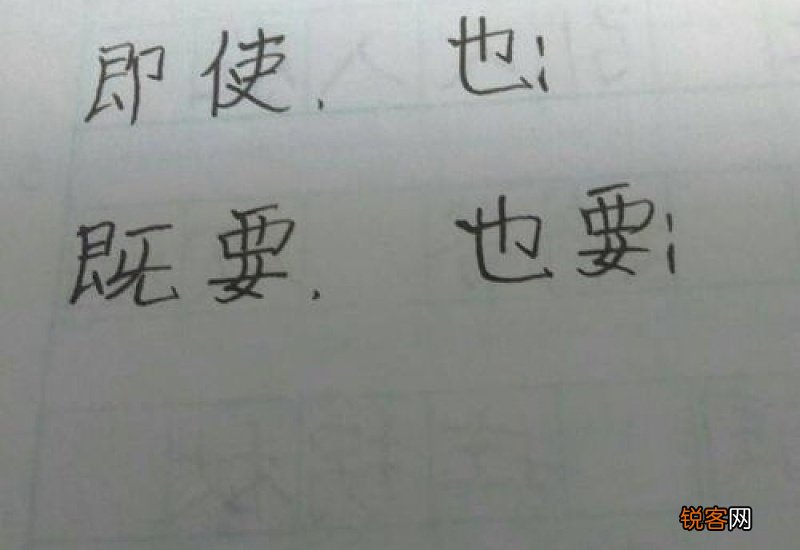 即使. 也;
既要. 也要;
锐客网